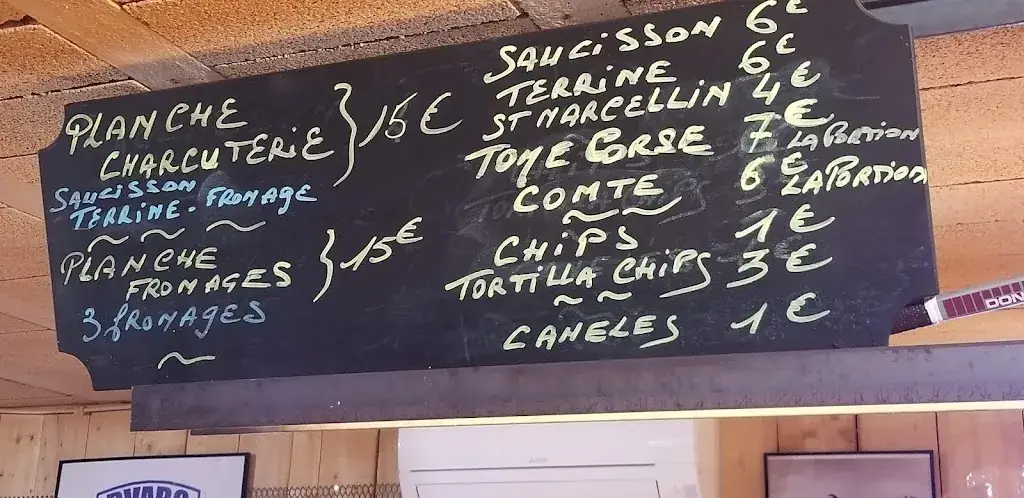 PLANCHE
CHARCUTERIE } 15 €
SAUCISSON
TERRINE. FROMAGE
PLANCHE
FROMAGES } 15 €
3 fROMAGES
SAUCISSON 6 €
TERRINE 6 €
ST MARCELLIN 4 €
TOME CORSE 7 € LA PORTION
COMTE 6 € LA PORTION
CHIPS 1 €
TORTILLA CHIPS 3 €
CANELES 1 €
DON